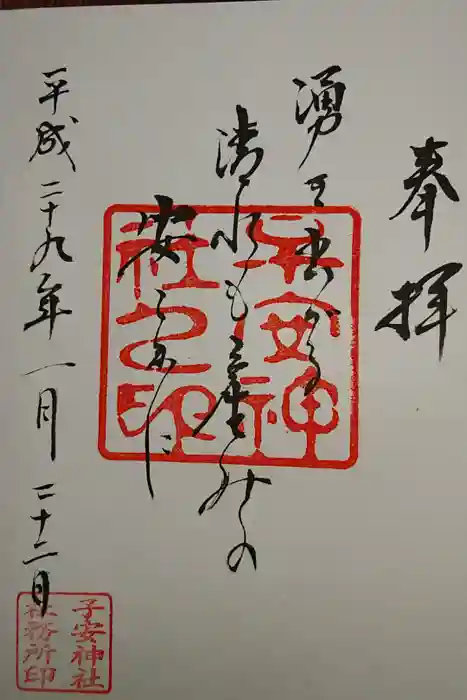 奉拝
湧き出づる
清水も産みの
安
子安神
社之印
平成二十九年一月二十二日
子安神社
社務所印